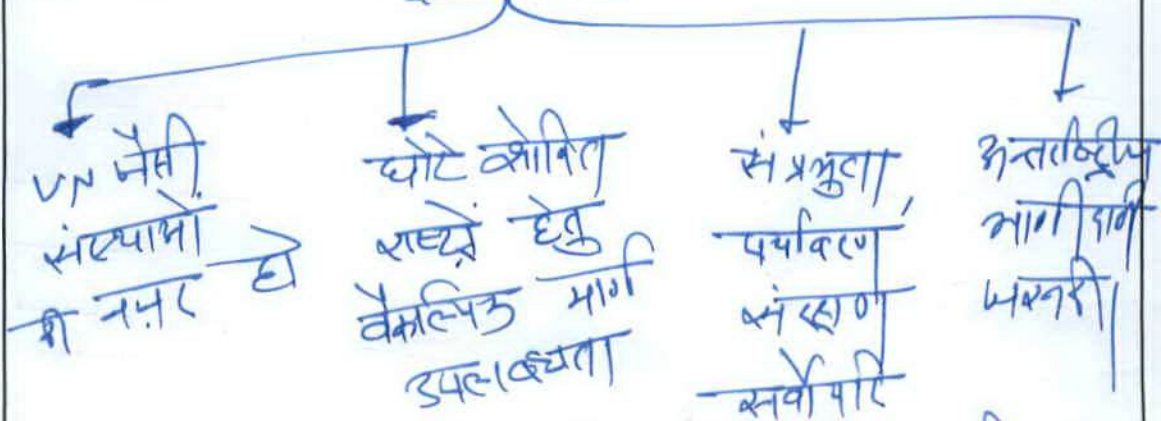 UN जैसी
संस्थाओं
की नज़र हो
छोटे शोषित
राष्ट्रों हेतु
वैकल्पिक मार्ग
उपलब्धता
संप्रभुता,
पर्यावरण
संरक्षण
सर्वोपरि
अन्तर्राष्ट्रीय
भागीदारी
जरूरी।